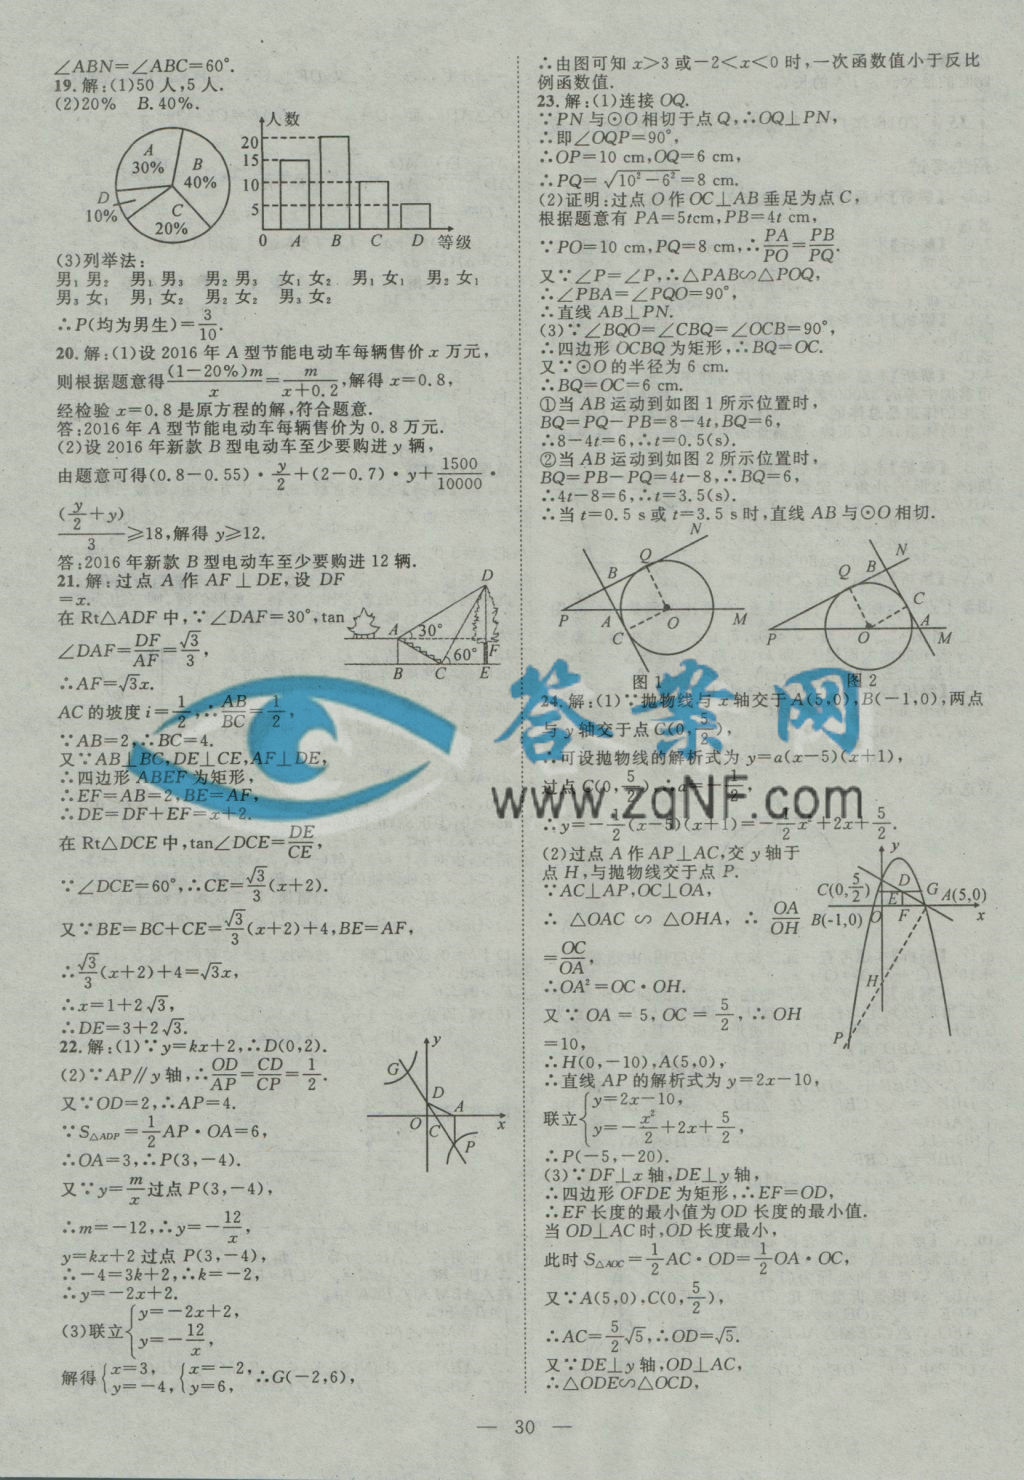 ∠ABN=∠ABC=60°.
19.解:(1)50人,5人.
(2)20%　B.40%.
A 30%
B 40%
C 20%
D 10%
人数
20
15
10
5
0 A B C D 等级
(3)列举法:
男₁男₂　男₁男₃　男₂男₃　女₁女₂　男₁女₁　男₂女₁
男₃女₁　男₁女₂　男₂女₂　男₃女₂
∴P(均为男生)=3/10.
20.解:(1)设2016年A型节能电动车每辆售价x万元,
则根据题意得(1-20%)m/x=m/(x+0.2),解得x=0.8,
经检验x=0.8是原方程的解,符合题意.
答:2016年A型节能电动车每辆售价为0.8万元.
(2)设2016年新款B型电动车至少要购进y辆,
由题意可得(0.8-0.55)·y/2+(2-0.7)·y+1500/10000·
(y/2+y)/3≥18,解得y≥12.
答:2016年新款B型电动车至少要购进12辆.
21.解:过点A作AF⊥DE,设DF
=x.
在Rt△ADF中,∵∠DAF=30°,tan
∠DAF=DF/AF=√3/3,
∴AF=√3x.
D
A 30°
F
60°
B C E
AC的坡度i=1/2,∴AB/BC=1/2,
∵AB=2,∴BC=4.
又∵AB⊥BC,DE⊥CE,AF⊥DE,
∴四边形ABEF为矩形,
∴EF=AB=2,BE=AF,
∴DE=DF+EF=x+2.
在Rt△DCE中,tan∠DCE=DE/CE,
∵∠DCE=60°,∴CE=√3/3(x+2).
又∵BE=BC+CE=√3/3(x+2)+4,BE=AF,
∴√3/3(x+2)+4=√3x,
∴x=1+2√3,
∴DE=3+2√3.
22.解:(1)∵y=kx+2,∴D(0,2).
(2)∵AP∥y轴,∴OD/AP=CD/CP=1/2.
又∵OD=2,∴AP=4.
∵S△ADP=1/2AP·OA=6,
∴OA=3,∴P(3,-4).
又∵y=m/x过点P(3,-4),
∴m=-12,∴y=-12/x,
y=kx+2过点P(3,-4),
∴-4=3k+2,∴k=-2,
∴y=-2x+2.
G
y
D
A
O C
x
P
(3)联立{y=-2x+2,
y=-12/x,
解得{x=3, y=-4, {x=-2, y=6, ∴G(-2,6),
∴由图可知x>3或-2<x<0时,一次函数值小于反比
例函数值.
23.解:(1)连接OQ.
∵PN与⊙O相切于点Q,∴OQ⊥PN,
∴即∠OQP=90°,
∴OP=10 cm,OQ=6 cm,
∴PQ=√(10²-6²)=8 cm.
(2)证明:过点O作OC⊥AB垂足为点C,
根据题意有PA=5tcm,PB=4t cm,
∵PO=10 cm,PQ=8 cm,∴PA/PO=PB/PQ.
又∵∠P=∠P,∴△PAB∽△POQ,
∴∠PBA=∠PQO=90°,
∴直线AB⊥PN.
(3)∵∠BQO=∠CBQ=∠OCB=90°,
∴四边形OCBQ为矩形,∴BQ=OC.
又∵⊙O的半径为6 cm.
∴BQ=OC=6 cm.
①当AB运动到如图1所示位置时,
BQ=PQ-PB=8-4t,BQ=6,
∴8-4t=6,∴t=0.5(s).
②当AB运动到如图2所示位置时,
BQ=PB-PQ=4t-8,∴BQ=6,
∴4t-8=6,∴t=3.5(s).
∴当t=0.5 s或t=3.5 s时,直线AB与⊙O相切.
N
Q
B
P A O M
C
图1
N
B
Q
C
P O A M
图2
24.解:(1)∵抛物线与x轴交于A(5,0),B(-1,0),两点
与y轴交于点C(0,5/2),
∴可设抛物线的解析式为y=a(x-5)(x+1),
过点C(0,5/2),∴a=-1/2,
∴y=-1/2(x-5)(x+1)=-1/2x²+2x+5/2.
(2)过点A作AP⊥AC,交y轴于
点H,与抛物线交于点P.
∵AC⊥AP,OC⊥OA,
∴△OAC∽△OHA,∴OA/OH
=OC/OA,
∴OA²=OC·OH.
又∵OA=5,OC=5/2,∴OH
=10,
∴H(0,-10),A(5,0),
y
C(0,5/2)
D
E
G
A(5,0)
B(-1,0)
O F
x
H
P
∴直线AP的解析式为y=2x-10,
联立{y=2x-10,
y=-x²/2+2x+5/2,
∴P(-5,-20).
(3)∵DF⊥x轴,DE⊥y轴,
∴四边形OFDE为矩形,∴EF=OD,
∴EF长度的最小值为OD长度的最小值.
当OD⊥AC时,OD长度最小,
此时S△AOC=1/2AC·OD=1/2OA·OC,
又∵A(5,0),C(0,5/2),
∴AC=5/2√5,∴OD=√5.
又∵DE⊥y轴,OD⊥AC,
∴△ODE∽△OCD,
答案网
www.zqNF.com
— 30 —